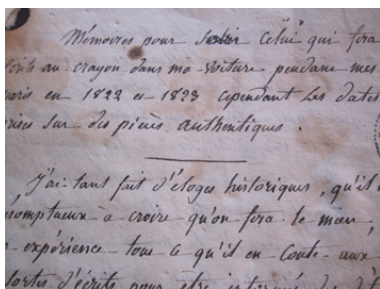 Mémoires pour servir celui qui fera
écrits au crayon dans ma voiture pendant mes
en 1822 et 1823 cependant les dates
prises sur des pièces authentiques.
J'ai tant fait d'éloges historiques, qu'il
à croire qu'on fera le mien,
expérience tout ce qu'il en coute aux
sortes d'écrits pour être